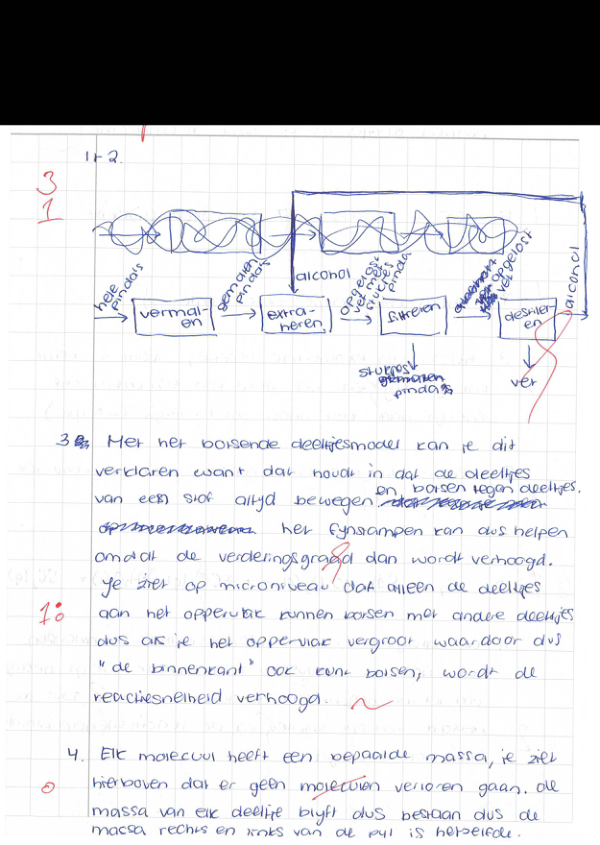 1+2
3
1
alcohol
hele pinda's
vermalen
gemalen pinda's
extraheren
alcohol
opgelost vet met stukjes pinda
filtreren
opgelost vet
destilleren
alcohol
stukjes pinda's
vet
3 Met het botsende deeltjesmodel kan je dit
verklaren want dat houdt in dat de deeltjes
van een stof altijd bewegen en botsen tegen deeltjes.
het fijnstampen kan dus helpen
omdat de verderingsgraad dan wordt verhoogd.
Je ziet op microniveau dat alleen de deeltjes
aan het oppervlak kunnen botsen met andere deeltjes
dus als je het oppervlak vergroot waardoor dus
"de binnenkant" ook kunt botsen, wordt de
reactiesnelheid verhoogd.
1
4. Elk molecuul heeft een bepaalde massa, je ziet
hierboven dat er geen moleculen verloren gaan. de
massa van elk deeltje blijft dus bestaan dus de
massa rechts en links van de pijl is hetzelfde.
0